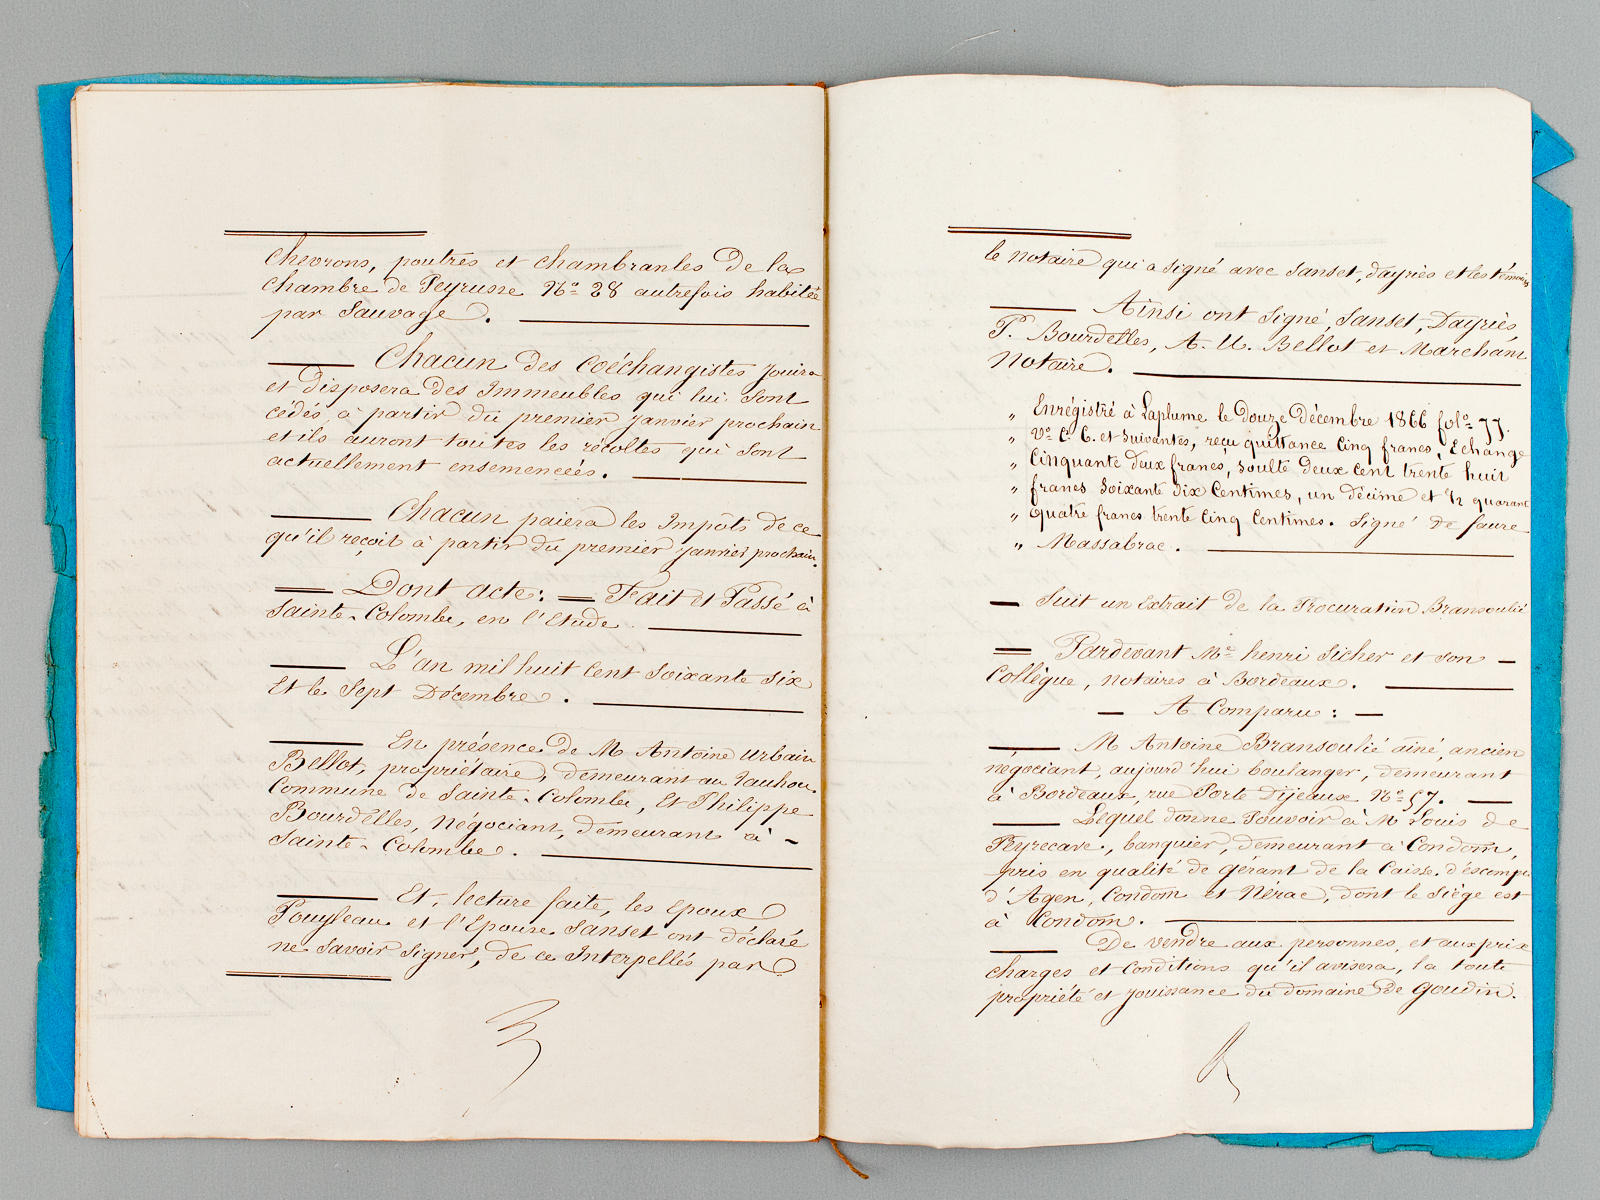 chevrons, poutres et chambranles de la
chambre de Peyrusse N.° 28 autrefois habitée
par Sauvage.
Chacun des coéchangistes jouira
et disposera des Immeubles qui lui sont
cédés à partir du premier janvier prochain
et ils auront toutes les récoltes qui sont
actuellement ensemencées.
Chacun paiera les Impôts de ce
qu'il reçoit à partir du premier janvier prochain.
Dont acte : Fait et Passé à
Sainte-Colombe, en l'Etude.
L'an mil huit cent soixante six
Et le Sept Décembre.
En présence de M Antoine Urbain
Bellot, propriétaire, demeurant au
Commune de Sainte-Colombe, Et Philippe
Bourdelles, Négociant, demeurant à -
Sainte-Colombe.
Et, lecture faite, les Epoux
Pouyleau et l'Epouse Sanset ont déclaré
ne savoir signer, de ce Interpellés par
le notaire qui a signé avec Sanset, Dayriès et les témoins
Ainsi ont signé, Sanset, Dayriès,
P. Bourdelles, A. U. Bellot et Marchant
Notaire.
" Enrégistré à Laplume le douze Décembre 1866 fol.° 77.
" V.° C. 6. et suivantes, reçu quittance Cinq francs, Echange
" Cinquante deux francs, soulte deux cent trente huit
" francs soixante dix Centimes, un décime et 1/2 quarante
" quatre francs trente cinq Centimes. Signé de faure
" Massabrac.
Suit un Extrait de la Procuration Bransoulié
Pardevant M.e henri Sicher et son -
Collègue, notaires à Bordeaux.
A Comparu :
M Antoine Bransoulié ainé, ancien
négociant, aujourd'hui boulanger, demeurant
à Bordeaux, rue Porte Dijeaux N.° 57.
Lequel donne Pouvoir à M Louis de
Peyrecave, banquier, demeurant à Condom,
pris en qualité de gérant de la Caisse d'éscompte
d'Agen, Condom et Nérac, dont le siège est
à Condom.
De vendre aux personnes, et aux prix
charges et conditions qu'il avisera, la toute
propriété et jouissance du domaine de Goudin.